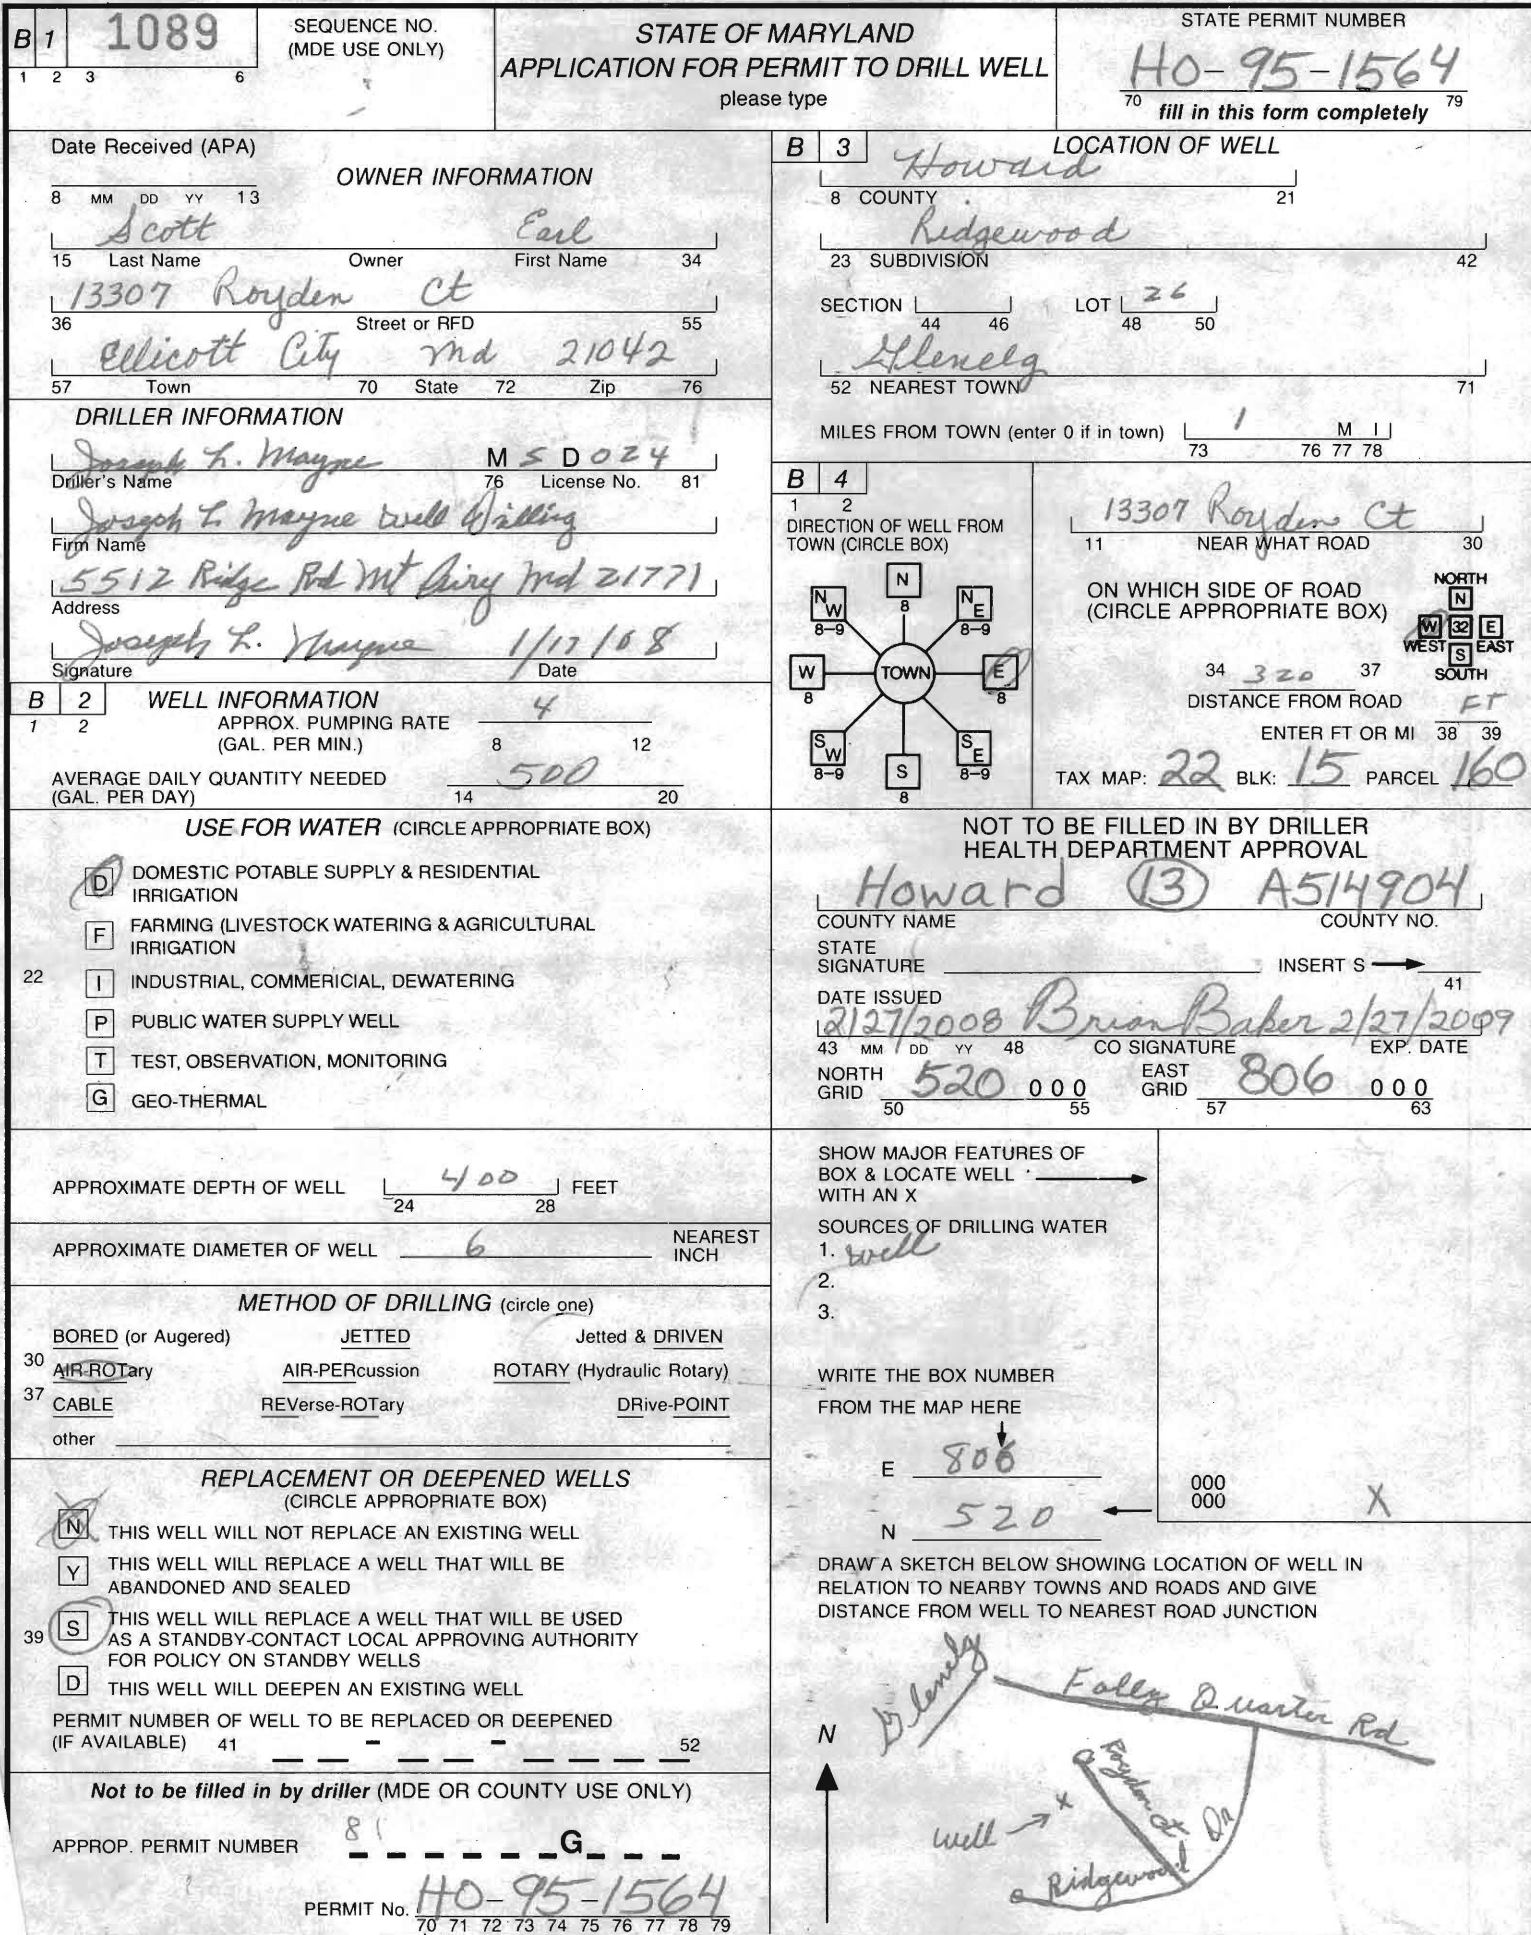 B 1 1089
1 2 3 6
SEQUENCE NO.
(MDE USE ONLY)
STATE OF MARYLAND
APPLICATION FOR PERMIT TO DRILL WELL
please type
STATE PERMIT NUMBER
HO-95-1564
70 fill in this form completely 79
Date Received (APA)
8 MM DD YY 13
OWNER INFORMATION
Scott Earl
15 Last Name Owner First Name 34
13307 Royden Ct
36 Street or RFD 55
Ellicott City Md 21042
57 Town 70 State 72 Zip 76
DRILLER INFORMATION
Joseph L. Mayne M S D 024
Driller's Name 76 License No. 81
Joseph L Mayne Well Drilling
Firm Name
5512 Ridge Rd Mt Airy Md 21771
Address
Joseph L. Mayne 1/17/08
Signature Date
B 2 WELL INFORMATION
1 2
APPROX. PUMPING RATE 4
(GAL. PER MIN.) 8 12
AVERAGE DAILY QUANTITY NEEDED 500
(GAL. PER DAY) 14 20
USE FOR WATER (CIRCLE APPROPRIATE BOX)
D DOMESTIC POTABLE SUPPLY & RESIDENTIAL
IRRIGATION
F FARMING (LIVESTOCK WATERING & AGRICULTURAL
IRRIGATION
22 I INDUSTRIAL, COMMERICIAL, DEWATERING
P PUBLIC WATER SUPPLY WELL
T TEST, OBSERVATION, MONITORING
G GEO-THERMAL
APPROXIMATE DEPTH OF WELL 400 FEET
24 28
APPROXIMATE DIAMETER OF WELL 6 NEAREST
INCH
METHOD OF DRILLING (circle one)
BORED (or Augered) JETTED Jetted & DRIVEN
30 AIR-ROTary AIR-PERcussion ROTARY (Hydraulic Rotary)
37 CABLE REVerse-ROTary DRive-POINT
other
REPLACEMENT OR DEEPENED WELLS
(CIRCLE APPROPRIATE BOX)
N THIS WELL WILL NOT REPLACE AN EXISTING WELL
Y THIS WELL WILL REPLACE A WELL THAT WILL BE
ABANDONED AND SEALED
39 S THIS WELL WILL REPLACE A WELL THAT WILL BE USED
AS A STANDBY-CONTACT LOCAL APPROVING AUTHORITY
FOR POLICY ON STANDBY WELLS
D THIS WELL WILL DEEPEN AN EXISTING WELL
PERMIT NUMBER OF WELL TO BE REPLACED OR DEEPENED
(IF AVAILABLE) 41 - - 52
Not to be filled in by driller (MDE OR COUNTY USE ONLY)
APPROP. PERMIT NUMBER 81 G
PERMIT No. HO-95-1564
70 71 72 73 74 75 76 77 78 79
B 3 LOCATION OF WELL
Howard
8 COUNTY 21
Ridgewood
23 SUBDIVISION 42
SECTION LOT 26
44 46 48 50
Glenelg
52 NEAREST TOWN 71
MILES FROM TOWN (enter 0 if in town) 1 M I
73 76 77 78
B 4
1 2
DIRECTION OF WELL FROM
TOWN (CIRCLE BOX)
N
8
NW
8-9
NE
8-9
W
8
TOWN
E
8
SW
8-9
S
8
SE
8-9
13307 Royden Ct
11 NEAR WHAT ROAD 30
ON WHICH SIDE OF ROAD
(CIRCLE APPROPRIATE BOX)
NORTH
N
W 32 E
WEST EAST
S
SOUTH
34 320 37
DISTANCE FROM ROAD FT
ENTER FT OR MI 38 39
TAX MAP: 22 BLK: 15 PARCEL 160
NOT TO BE FILLED IN BY DRILLER
HEALTH DEPARTMENT APPROVAL
Howard 13 A514904
COUNTY NAME COUNTY NO.
STATE
SIGNATURE INSERT S
41
DATE ISSUED
2/27/2008 Brian Baker 2/27/2009
43 MM DD YY 48 CO SIGNATURE EXP. DATE
NORTH
GRID 520 000
50 55
EAST
GRID 806 000
57 63
SHOW MAJOR FEATURES OF
BOX & LOCATE WELL
WITH AN X
SOURCES OF DRILLING WATER
1. well
2.
3.
WRITE THE BOX NUMBER
FROM THE MAP HERE
E 806
N 520
000
000
X
DRAW A SKETCH BELOW SHOWING LOCATION OF WELL IN
RELATION TO NEARBY TOWNS AND ROADS AND GIVE
DISTANCE FROM WELL TO NEAREST ROAD JUNCTION
N
Glenelg
Folly Quarter Rd
Royden Ct
well x
Ridgewood Dr